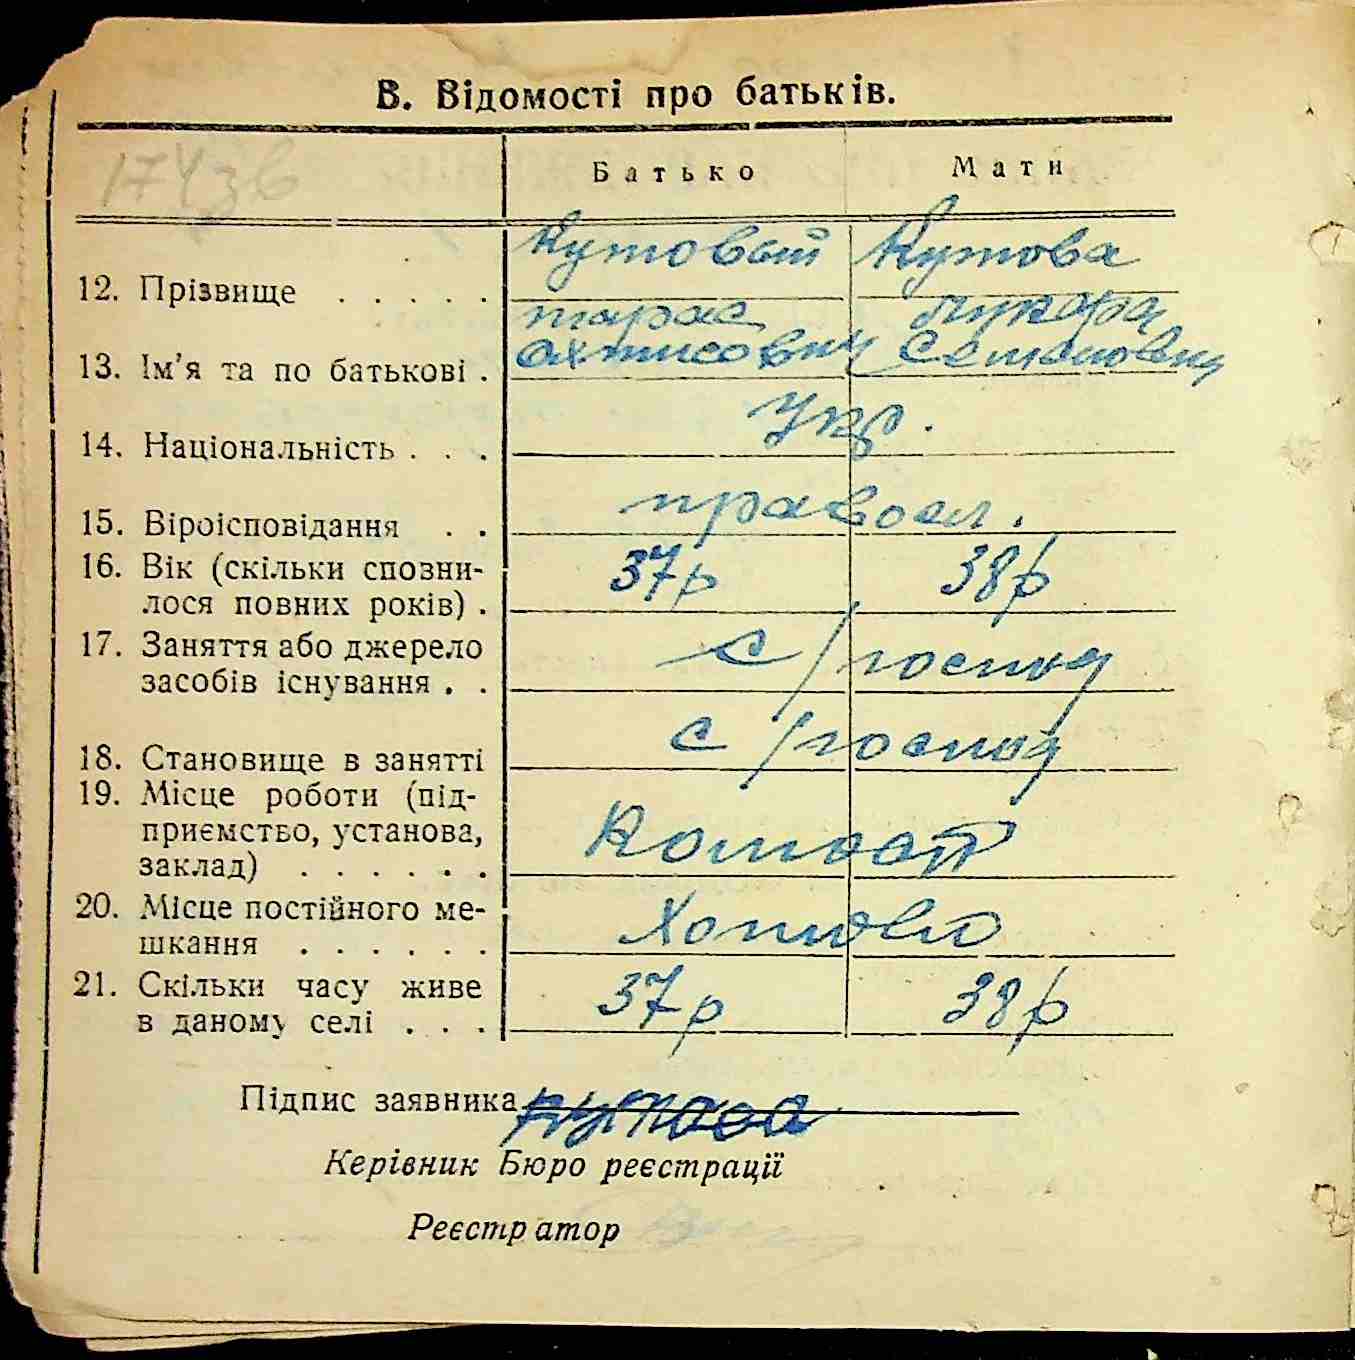 В. Відомості про батьків.
174зв
Батько Мати
Кутовый Кутова
12. Прізвище . . . . .
тарас
13. Ім'я та по батькові . Семеновна
14. Національність . . . Укр.
15. Віроісповідання . . правосл.
16. Вік (скільки сповни- 37р 38р
лося повних років) .
17. Заняття або джерело с/господ
засобів існування . .
18. Становище в занятті с/господ
19. Місце роботи (під-
приємство, установа,
заклад) . . . . . .
20. Місце постійного ме-
шкання . . . . . .
21. Скільки часу живе 37р 38р
в даному селі . . .
Підпис заявника Кутова
Керівник Бюро реєстрації
Реєстратор